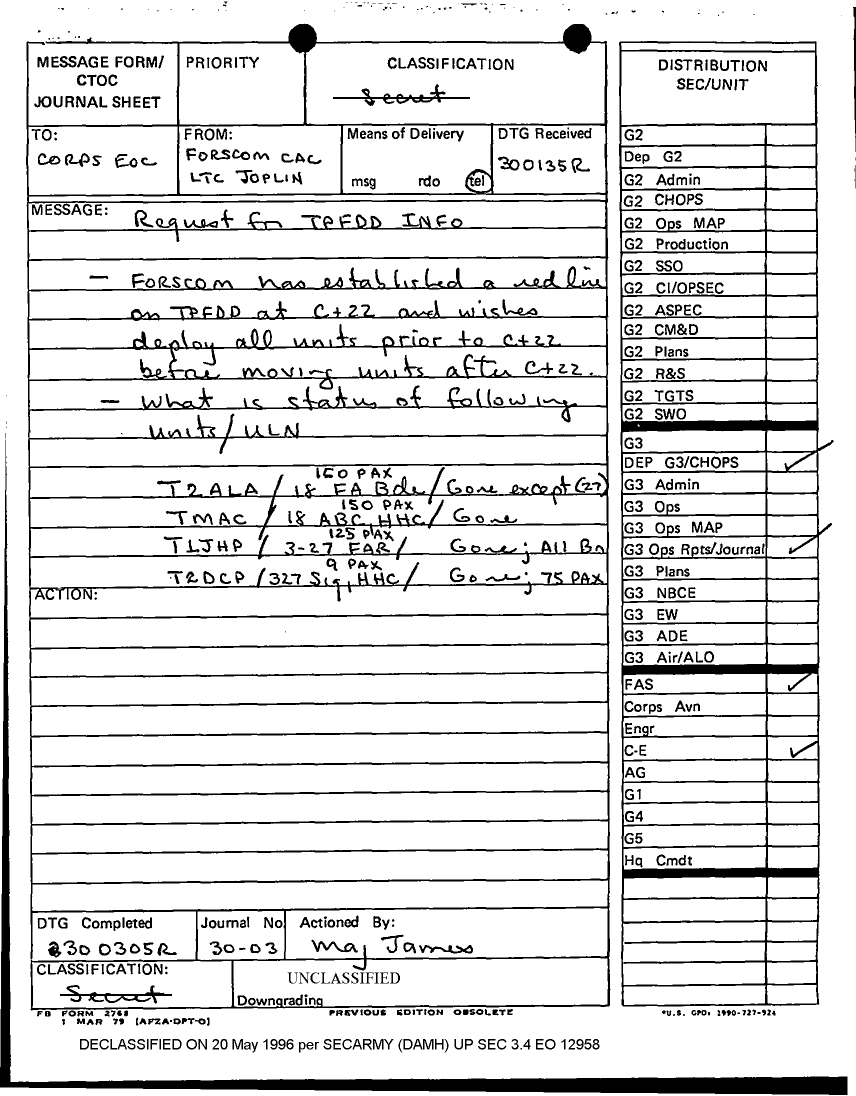 MESSAGE FORM/
CTOC
JOURNAL SHEET
PRIORITY
CLASSIFICATION
Secret
TO:
CORPS EOC
FROM:
FORSCOM CAC
LTC JOPLIN
Means of Delivery
msg rdo tel
DTG Received
300135R
MESSAGE:
Request for TPFDD INFO
- FORSCOM has established a red line
on TPFDD at C+22 and wishes
deploy all units prior to C+22
before moving units after C+22.
- What is status of following
units/ULN
150 PAX
T2ALA / 18 FA Bde / Gone except (27)
150 PAX
TMAC / 18 ABC, HHC / Gone
125 PAX
T1JHP / 3-27 FAR / Gone; All Bn
9 PAX
T2DCP / 327 Sig, HHC / Gone; 75 PAX
ACTION:
DTG Completed
300305R
Journal No.
30-03
Actioned By:
Maj James
CLASSIFICATION:
Secret
UNCLASSIFIED
Downgrading
FB FORM 2768
1 MAR 79 (AFZA-DPT-O)
PREVIOUS EDITION OBSOLETE
DISTRIBUTION
SEC/UNIT
G2
Dep G2
G2 Admin
G2 CHOPS
G2 Ops MAP
G2 Production
G2 SSO
G2 CI/OPSEC
G2 ASPEC
G2 CM&D
G2 Plans
G2 R&S
G2 TGTS
G2 SWO
G3
DEP G3/CHOPS
G3 Admin
G3 Ops
G3 Ops MAP
G3 Ops Rpts/Journal
G3 Plans
G3 NBCE
G3 EW
G3 ADE
G3 Air/ALO
FAS
Corps Avn
Engr
C-E
AG
G1
G4
G5
Hq Cmdt
*U.S. GPO: 1990-727-924
DECLASSIFIED ON 20 May 1996 per SECARMY (DAMH) UP SEC 3.4 EO 12958